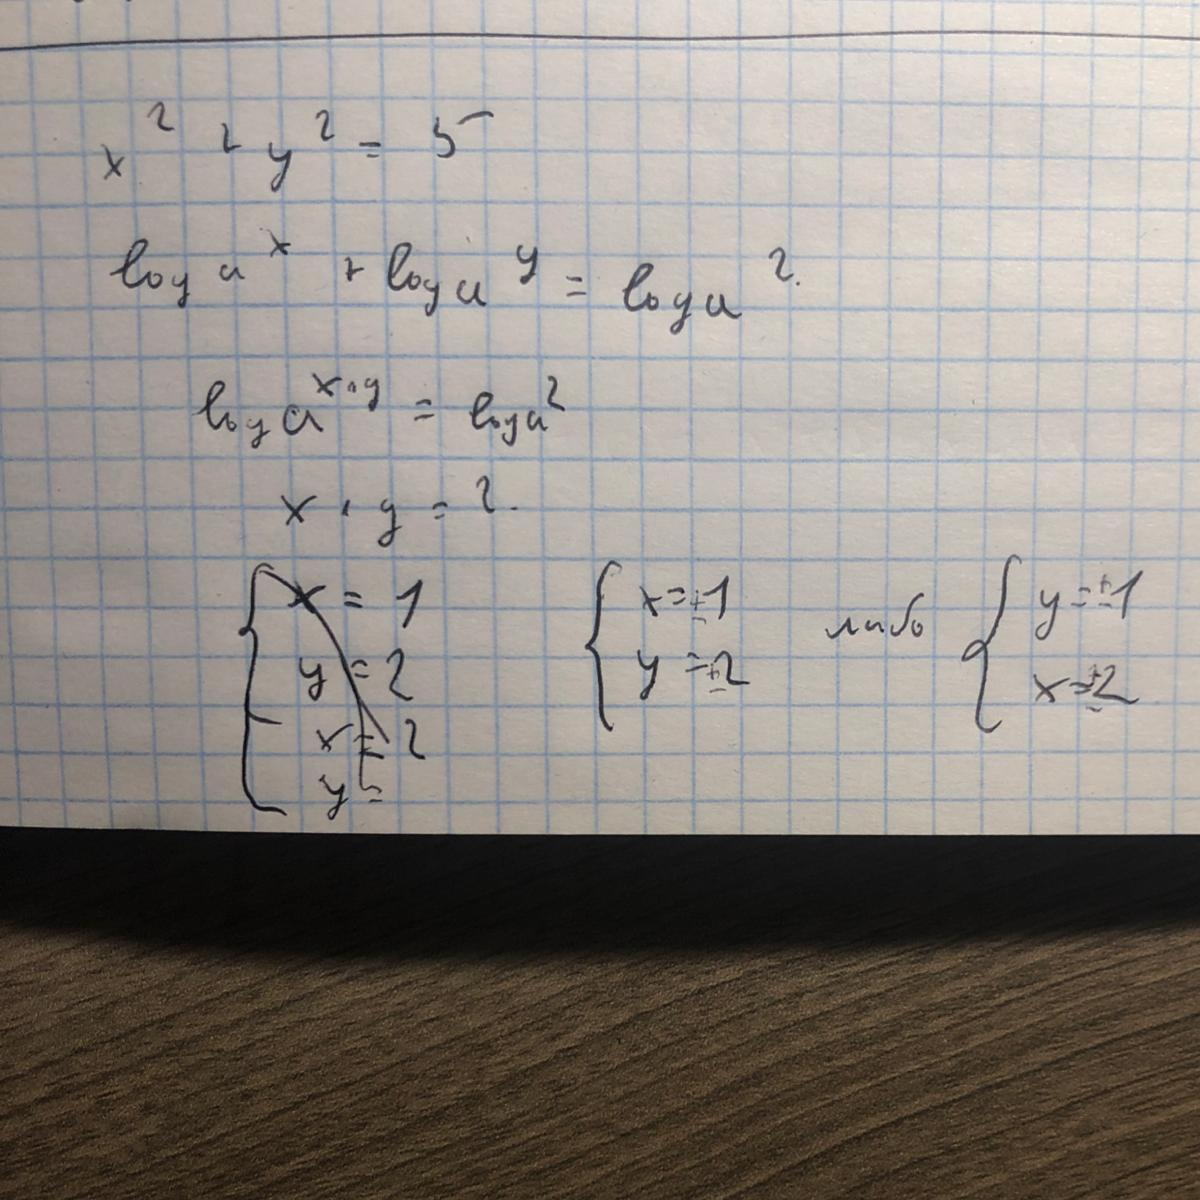 x² + y² = 5
log a^x + log a^y = log a^2.
log a^(x·y) = log a^2
x · y = 2.
{ x = 1
y = 2
x = 2
y =
{ x = ±1
y = ±2
либо
{ y = ±1
x = ±2